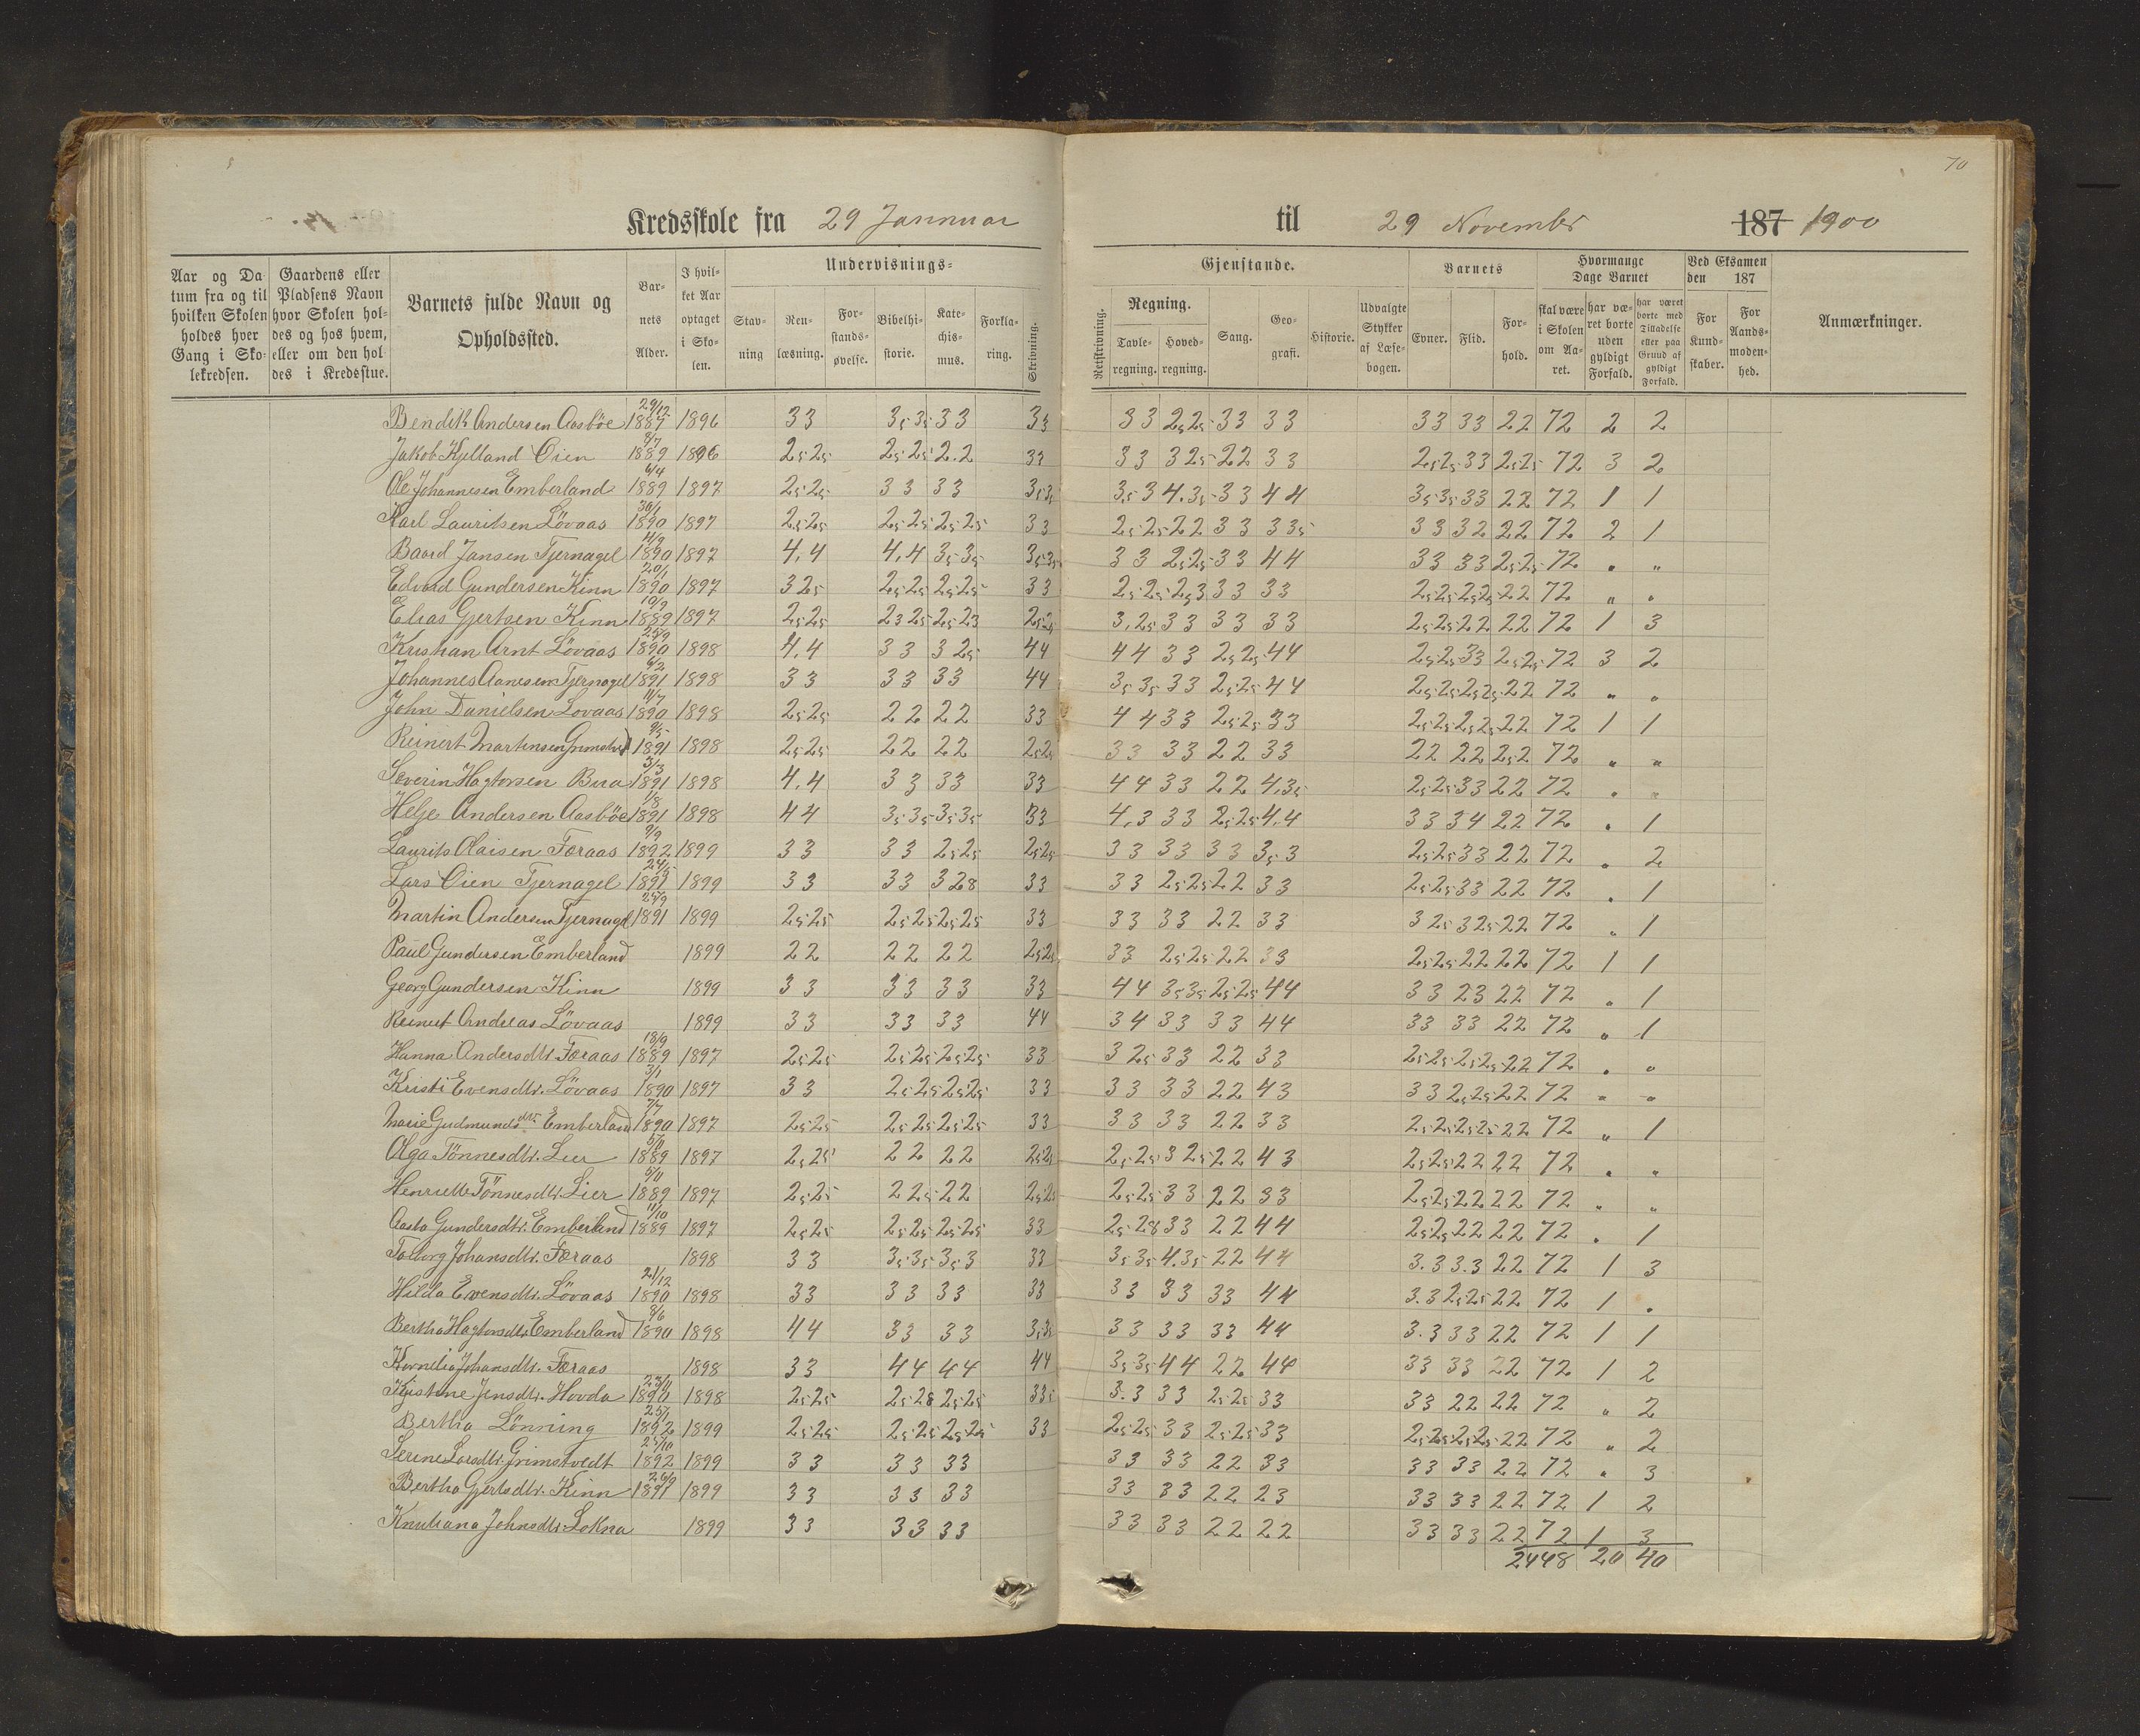 70
Kredsskole fra 29 Jannuar til 29 November 187 1900
Aar og Datum fra og til hvilken Skolen holdes hver Gang i Skolekredsen.
Gaardens eller Pladsens Navn hvor Skolen holdes og hos hvem, eller om den holdes i Kredsstue.
Barnets fulde Navn og Opholdssted.
Barnets Alder.
I hvilket Aar optaget i Skolen.
Undervisnings-Gjenstande.
Stavning
Renlæsning.
Forstandsøvelse.
Bibelhistorie.
Katechismus.
Forklaring.
Skrivning.
Retskrivning.
Regning.
Tavleregning.
Hovedregning.
Sang.
Geografi.
Historie.
Udvalgte Stykker af Læsebogen.
Barnets
Evner.
Flid.
Forhold.
Hvormange Dage Barnet
skal være i Skolen om Aaret.
har været borte uden gyldigt Forfald.
har været borte med Tilladelse eller paa Grund af gyldigt Forfald.
Ved Eksamen den 187
For Kundskaber.
For Aandsmodenhed.
Anmærkninger.
Bendik Andersen Aasböe 29/12 1887 1896 33 3,5 3,5 33 33 33 2,5 2,5 33 33 33 33 22 72 2 2
Jakob Kjelland Oien 8/7 1889 1896 2,5 2,5 2,5 2,5 2.2 33 33 3 2,5 22 33 2,5 2,5 33 2,5 2,5 72 3 2
Ole Johannesen Emberland 6/4 1889 1897 2,5 2,5 33 33 3,5 3,5 3,5 3 4. 3,5 33 44 3,5 3,5 33 22 72 1 1
Karl Lauritsen Lövaas 30/1 1890 1897 2,5 2,5 2,5 2,5 2,5 2,5 33 2,5 2,5 22 33 3 3,5 33 32 22 72 2 1
Baard Jansen Tjernagel 11/9 1890 1897 4,4 4,4 3,5 3,5 3,5 3,5 33 2,5 2,5 33 44 33 33 2,5 2,5 72 " "
Edvard Gundersen Kinn 20/1 1890 1897 3 2,5 2,5 2,5 2,5 2,5 33 2,5 2,5 2,5 3 33 33 2,5 2,5 2,5 2,5 22 72 " "
Elias Gjertsen Kinn 10/9 1889 1897 2,5 2,5 2 3 2,5 2,5 2 3 2,5 2,5 3, 2,5 33 33 33 2,5 2,5 22 22 72 1 3
Kristian Arnt Lövaas 25/9 1890 1898 4,4 33 3 2,5 44 44 33 2,5 2,5 44 2,5 2,5 33 2,5 2,5 72 3 2
Johannes Aanesen Tjernagel 6/2 1891 1898 33 33 33 44 3,5 3,5 33 2,5 2,5 44 2,5 2,5 2,5 2,5 22 72 " "
John Danielsen Lovaas 11/7 1890 1898 2,5 2,5 22 22 33 44 33 2,5 2,5 33 2,5 2,5 2,5 2,5 22 72 1 1
Reinert Martinsen Grimstvedt 9/5 1891 1898 2,5 2,5 22 22 2,5 2,5 33 33 22 33 22 22 2,5 2 72 " "
Severin Hagtorsen Bua 3/3 1891 1898 4,4 33 33 33 44 33 22 4, 3,5 2,5 2,5 33 22 72 " "
Helje Andersen Aasböe 1/8 1891 1898 44 3,5 3,5 3,5 3,5 33 4,3 33 2,5 2,5 4,4 33 34 22 72 " 1
Laurits Olaisen Færaas 9/9 1892 1899 33 33 2,5 2,5 2,5 2,5 33 33 33 3,5 3 2,5 2,5 33 22 72 " 2
Lars Oien Tjernagel 1891 1899 33 33 3 2,8 33 33 2,5 2,5 22 33 2,5 2,5 33 22 72 " 1
Martin Andersen Tjernagel 25/9 1891 1899 2,5 2,5 2,5 2,5 2,5 2,5 33 33 33 22 33 3 2,5 3 2,5 22 72 " 1
Paul Gundersen Emberland 1899 22 22 22 2,5 2,5 33 2,5 2,5 22 33 2,5 2,5 22 22 72 1 1
Georg Gundersen Kinn 1899 33 33 33 33 44 3,5 3,5 2,5 2,5 44 33 23 22 72 " 1
Reinert Andreas Lövaas 1899 33 33 33 44 34 33 33 44 33 33 22 72 " 1
Hanna Andersdtr. Færaas 18/9 1889 1897 2,5 2,5 2,5 2,5 2,5 2,5 33 3 2,5 33 22 33 2,5 2,5 2,5 2,5 22 72 " "
Kristi Evensdtr. Lövaas 3/1 1890 1897 33 2,5 2,5 2,5 2,5 33 33 33 22 43 33 2,5 2,5 22 72 " "
Marie Gudmundsdtr. Emberland 7/7 1890 1897 2,5 2,5 2,5 2,5 2,5 2,5 33 33 33 22 33 2,5 2,5 2,5 2,5 22 72 " 1
Olga Tönnesdtr. Lier 5/11 1889 1897 2,5 2,5 22 22 2,5 2,5 2,5 2,5 3 2,5 22 43 2,5 2,5 22 22 72 " "
Henriette Tönnesdtr. Lier 5/11 1889 1897 2,5 2,5 2 2,5 22 2,5 2,5 2,5 2,5 33 22 33 2,5 2,5 22 22 72 " "
Aasta Gundersdtr. Emberland 11/10 1889 1897 2,5 2,5 2,5 2,5 2,5 2,5 33 2,5 2,8 33 22 44 2,5 2,5 22 22 72 " 1
Johansdtr. Færaas 1898 33 3,5 3,5 3,5 3 33 3,5 3,5 4. 3,5 22 44 3.3 3.3 22 72 1 3
Hilda Evensdtr. Lövaas 21/12 1890 1898 33 33 33 33 33 33 33 44 3.3 2,5 2,5 22 72 1 "
Bertha Hagtorsdtr Emberland 8/6 1890 1898 44 33 33 3,5 3,5 33 33 33 44 3.3 33 22 72 1 1
Kornelia Johansdtr. Færaas 1898 33 44 44 44 3,5 3,5 44 22 44 33 33 22 72 1 2
Kjistine Jensdtr. Hovda 23/11 1890 1898 2,5 2,5 2,5 2,8 2,5 2,5 3 3,5 3.3 33 2,5 2,5 33 33 22 22 72 " 2
Bertha Lönning 25/1 1892 1899 2,5 2,5 2,5 2,5 2,5 2,5 33 2,5 2,5 33 2,5 2,5 33 2,5 2,5 2,5 2,5 22 72 " 2
Serine Larsdtr. Grimstvedt 25/10 1892 1899 33 33 33 33 33 22 33 33 33 22 72 " 3
Bertha Gjertsdtr. Kinn 26/9 1891 1899 33 33 33 33 33 22 23 33 33 22 72 1 2
Knutiana Johnsdtr. Lokna 1899 33 33 33 33 33 22 22 33 33 22 72 1 3
2448 20 40